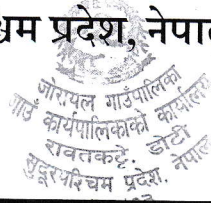 श्चिम प्रदेश, नेपाल
जोरायल गाउँपालिका
गाउँ कार्यपालिकाको कार्यालय
रावतकट्टे, डोटी
सुदूरपश्चिम प्रदेश, नेपाल